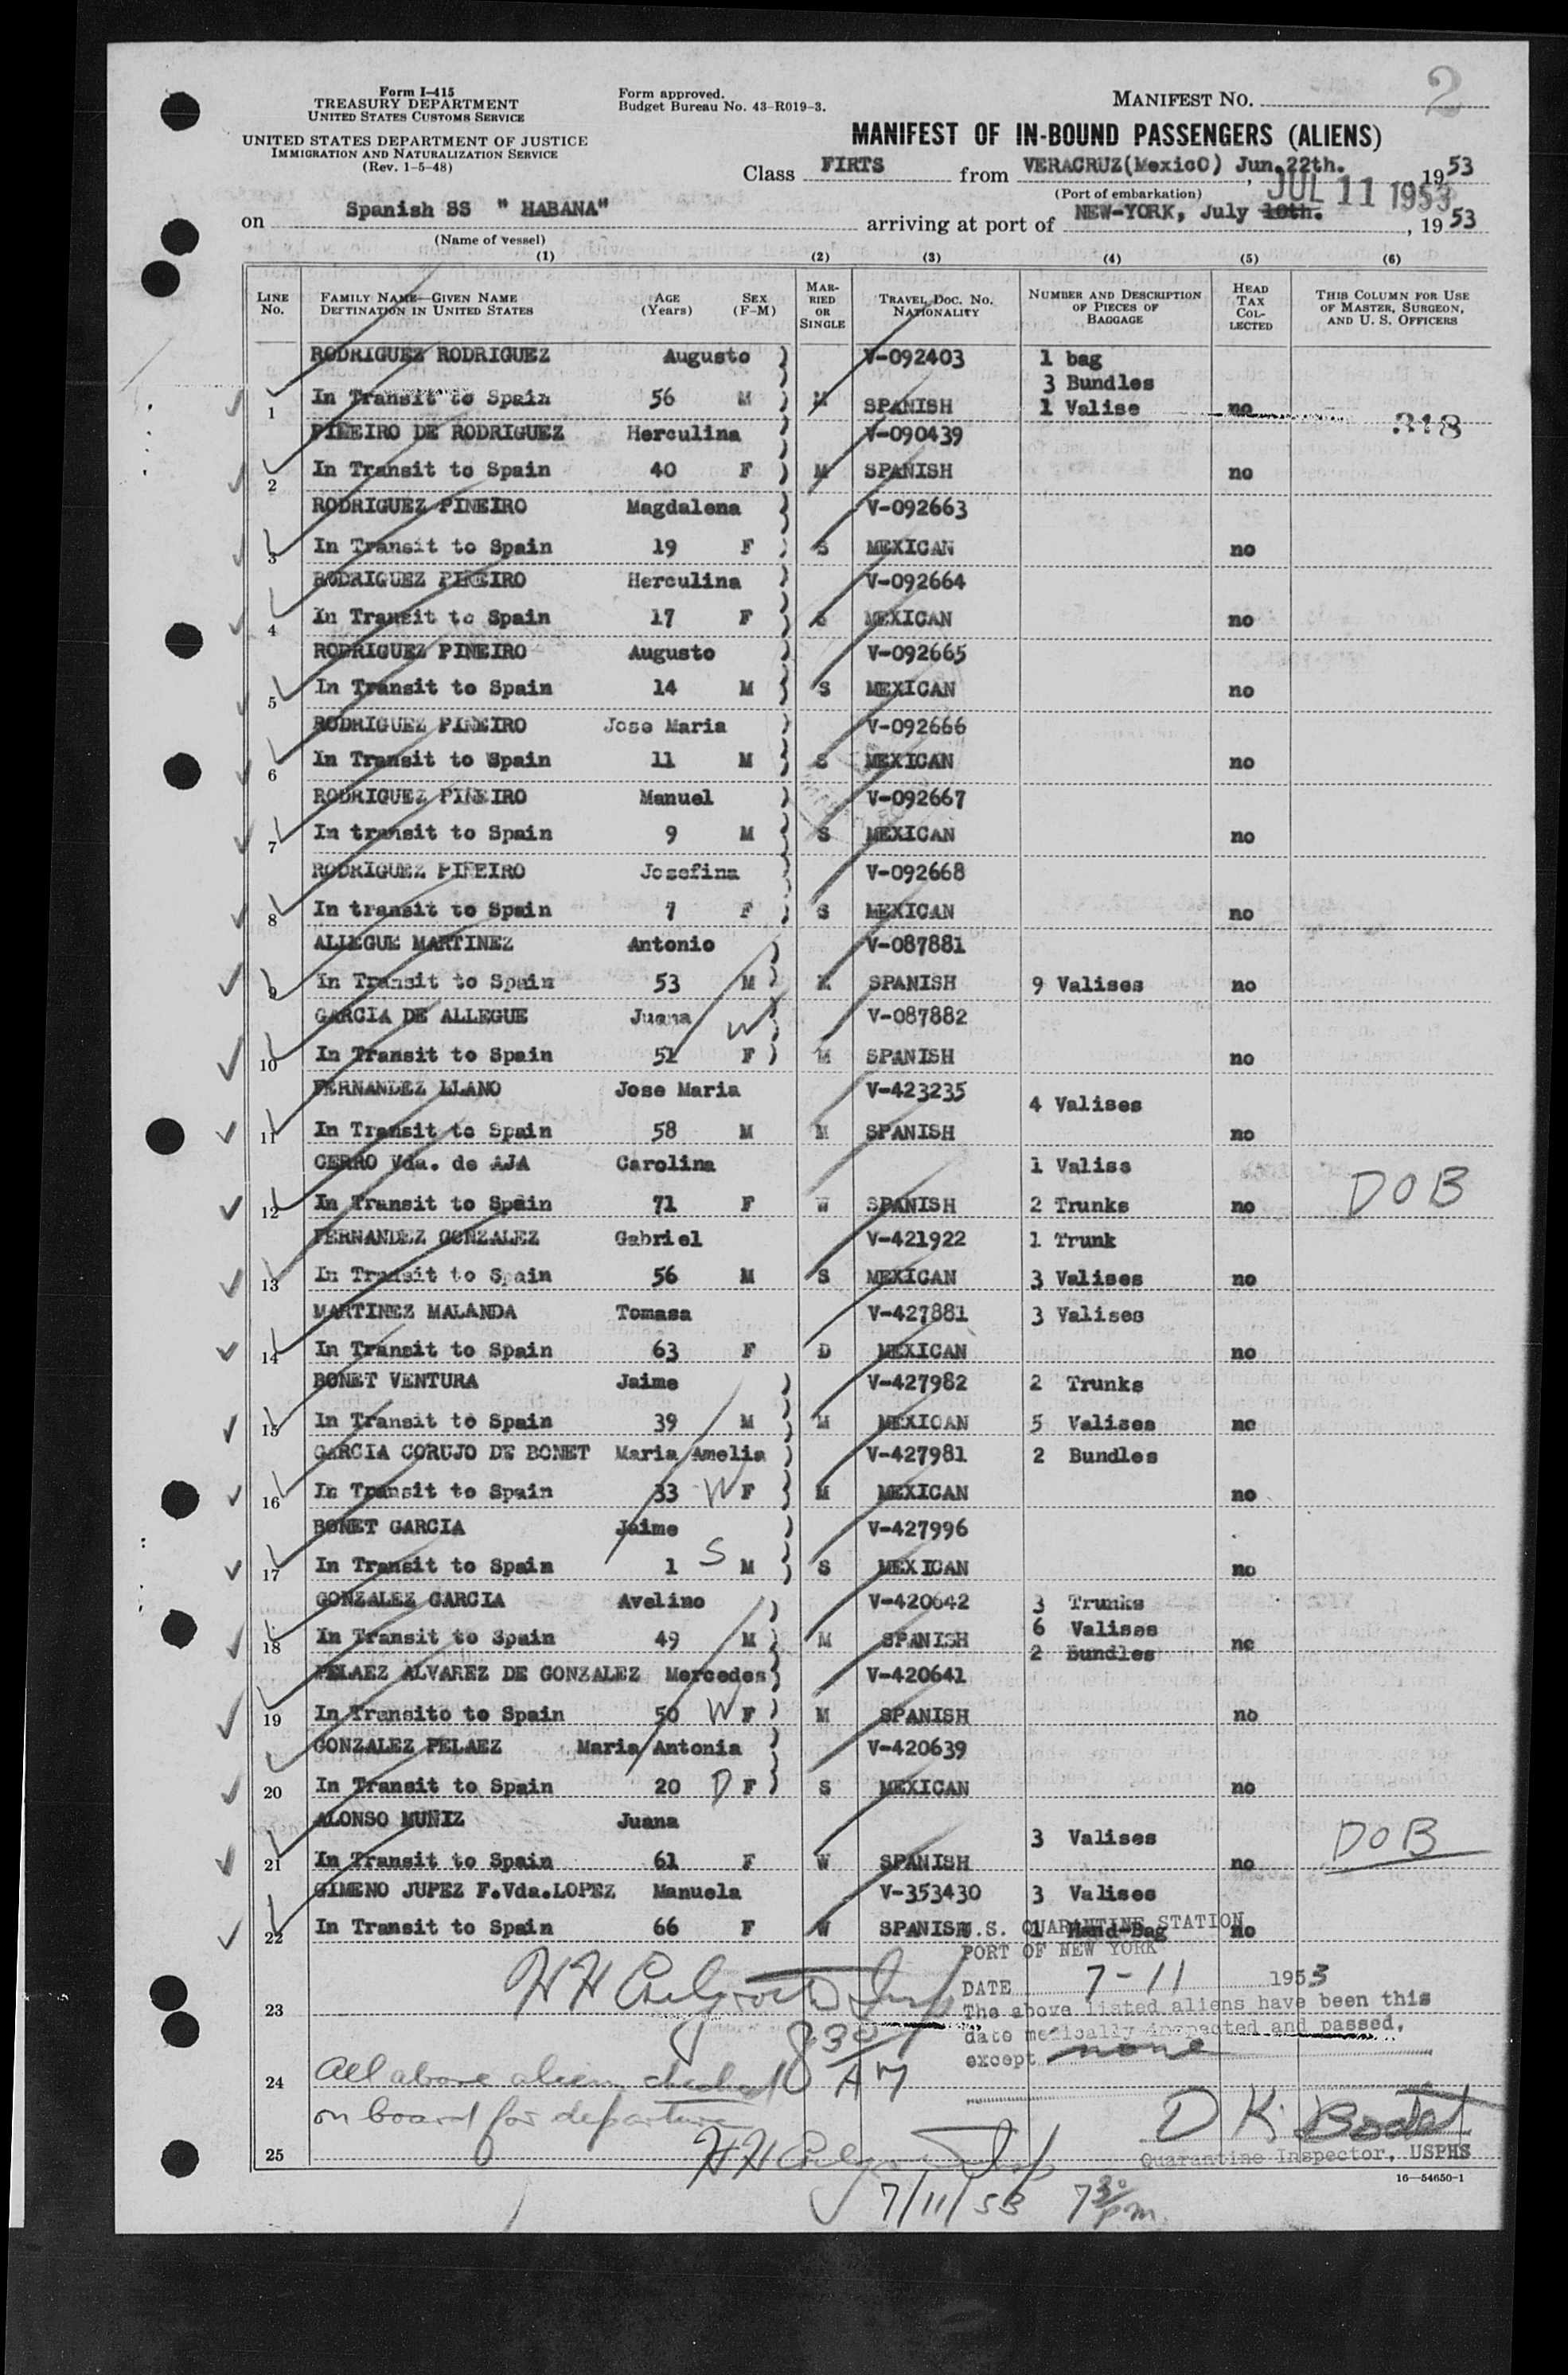 2
Form I-415
TREASURY DEPARTMENT
UNITED STATES CUSTOMS SERVICE
UNITED STATES DEPARTMENT OF JUSTICE
IMMIGRATION AND NATURALIZATION SERVICE
(Rev. 1-5-48)
Form approved.
Budget Bureau No. 43-R019-3.
MANIFEST NO.
MANIFEST OF IN-BOUND PASSENGERS (ALIENS)
Class FIRTS from VERACRUZ(MexicO) Jun.22th. , 1953
(Port of embarkation) JUL 11 1953
on Spanish SS " HABANA" arriving at port of NEW-YORK, July 10th. , 1953
(Name of vessel)
(1) (2) (3) (4) (5) (6)
LINE No. FAMILY NAME—GIVEN NAME DESTINATION IN UNITED STATES AGE (Years) SEX (F-M) MARRIED OR SINGLE TRAVEL DOC. NO. NATIONALITY NUMBER AND DESCRIPTION OF PIECES OF BAGGAGE HEAD TAX COLLECTED THIS COLUMN FOR USE OF MASTER, SURGEON, AND U. S. OFFICERS
RODRIGUEZ RODRIGUEZ Augusto V-092403 1 bag
3 Bundles
1 In Transit to Spain 56 M M SPANISH 1 Valise no 318
PIÑEIRO DE RODRIGUEZ Herculina V-090439
2 In Transit to Spain 40 F M SPANISH no
RODRIGUEZ PINEIRO Magdalena V-092663
3 In Transit to Spain 19 F S MEXICAN no
RODRIGUEZ PIÑEIRO Herculina V-092664
4 In Transit to Spain 17 F S MEXICAN no
RODRIGUEZ PINEIRO Augusto V-092665
5 In Transit to Spain 14 M S MEXICAN no
RODRIGUEZ PIÑEIRO Jose Maria V-092666
6 In Transit to Spain 11 M S MEXICAN no
RODRIGUEZ PIÑEIRO Manuel V-092667
7 In transit to Spain 9 M S MEXICAN no
RODRIGUEZ PIÑEIRO Josefina V-092668
8 In transit to Spain 7 F S MEXICAN no
ALLEGUE MARTINEZ Antonio V-087881
9 In Transit to Spain 53 M M SPANISH 9 Valises no
GARCIA DE ALLEGUE Juana W V-087882
10 In Transit to Spain 51 F M SPANISH no
FERNANDEZ LLANO Jose Maria V-423235 4 Valises
11 In Transit to Spain 58 M M SPANISH no
CERRO Vda. de AJA Carolina 1 Valise
12 In Transit to Spain 71 F W SPANISH 2 Trunks no DOB
FERNANDEZ GONZALEZ Gabriel V-421922 1 Trunk
13 In Transit to Spain 56 M S MEXICAN 3 Valises no
MARTINEZ MALANDA Tomasa V-427881 3 Valises
14 In Transit to Spain 63 F D MEXICAN no
BONET VENTURA Jaime V-427982 2 Trunks
15 In Transit to Spain 39 M M MEXICAN 5 Valises no
GARCIA CORUJO DE BONET Maria Amelia V-427981 2 Bundles
16 In Transit to Spain 33 W F M MEXICAN no
BONET GARCIA Jaime V-427996
17 In Transit to Spain 1 S M S MEXICAN no
GONZALEZ GARCIA Avelino V-420642 3 Trunks
6 Valises
18 In Transit to Spain 49 M M SPANISH 2 Bundles no
PELAEZ ALVAREZ DE GONZALEZ Mercedes V-420641
19 In Transito to Spain 50 W F M SPANISH no
GONZALEZ PELAEZ Maria Antonia V-420639
20 In Transit to Spain 20 D F S MEXICAN no
ALONSO MUÑIZ Juana 3 Valises DOB
21 In Transit to Spain 61 F W SPANISH no
GIMENO JUPEZ F.Vda.LOPEZ Manuela V-353430 3 Valises
22 In Transit to Spain 66 F W SPANISH 1 Hand-Bag no
U.S. QUARANTINE STATION
PORT OF NEW YORK
DATE 7-11 1953
23 The above listed aliens have been this
date medically inspected and passed,
except none
8 30 AM
24 All above aliens checked
on board for departure
D K
Quarantine Inspector, USPHS
25
16—54650-1
7/11/53 7 30 pm